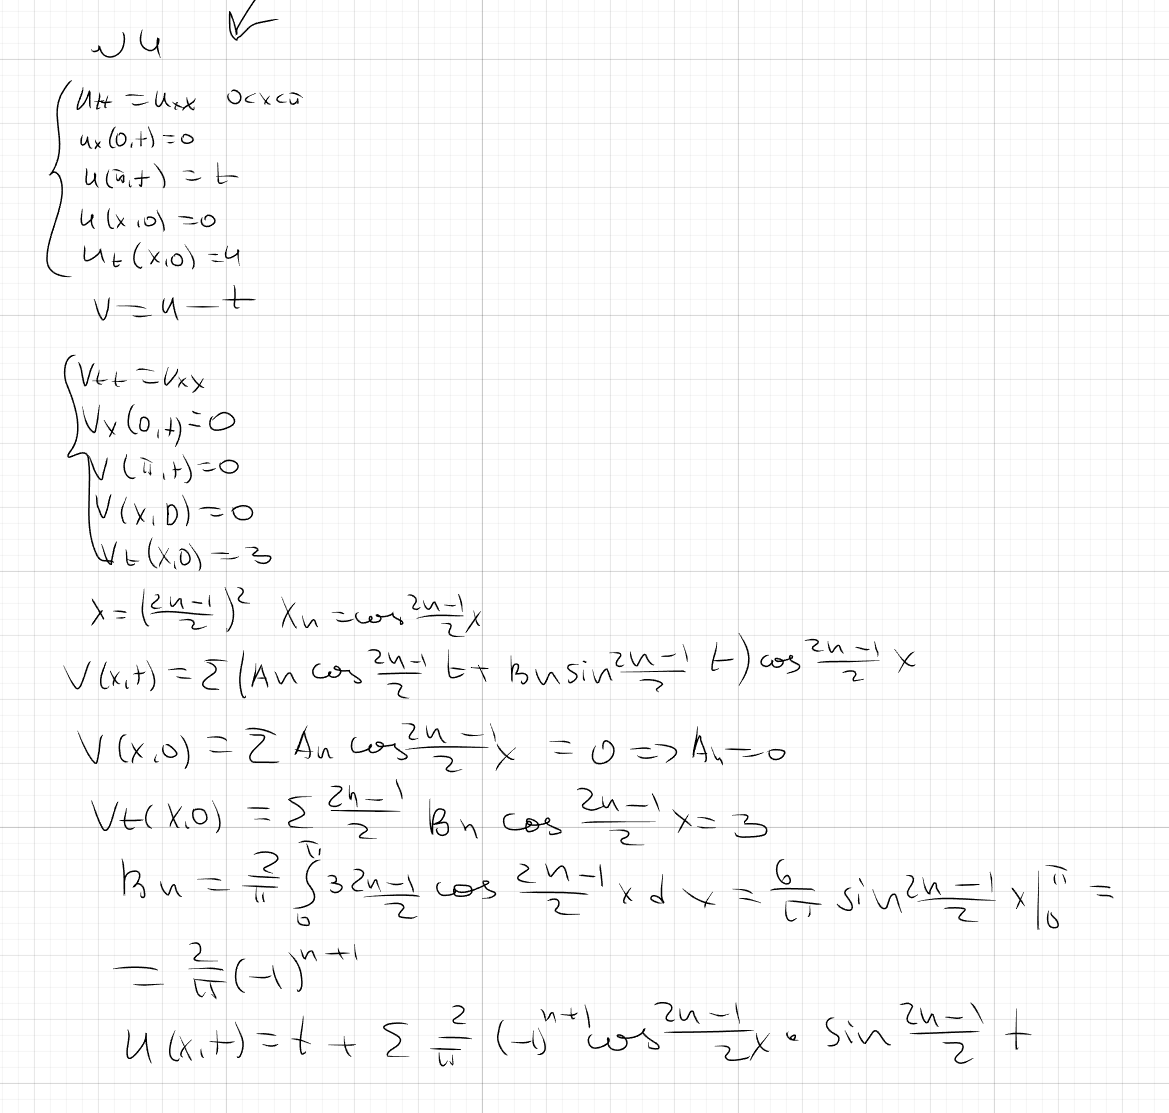 √ 4 ✓
u_tt = u_xx 0<x<π
u_x(0,t)=0
u(π,t) = t
u(x,0)=0
u_t(x,0)=4
V=u-t
V_tt=V_xx
V_x(0,t)=0
V(π,t)=0
V(x,0)=0
V_t(x,0)=3
λ=((2n-1)/2)^2 X_n=cos (2n-1)/2 x
V(x,t)=Σ(A_n cos (2n-1)/2 t + B_n sin (2n-1)/2 t) cos (2n-1)/2 x
V(x,0)=Σ A_n cos (2n-1)/2 x = 0 => A_n=0
V_t(x,0)=Σ (2n-1)/2 B_n cos (2n-1)/2 x=3
B_n = 2/π ∫_0^π 3 (2n-1)/2 cos (2n-1)/2 x dx = 6/π sin (2n-1)/2 x |_0^π =
= 2/π (-1)^(n+1)
u(x,t)=t + Σ 2/π (-1)^(n+1) cos (2n-1)/2 x · sin (2n-1)/2 t